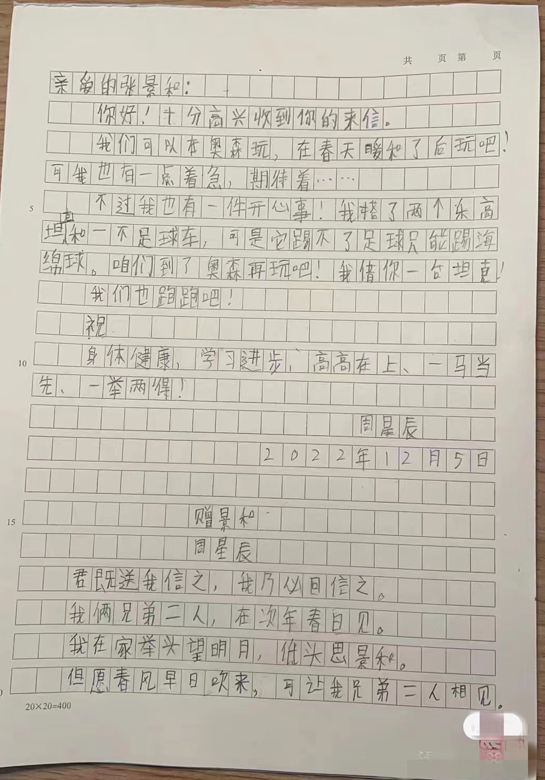 共 页 第 页
亲爱的张景和：
你好！十分高兴收到你的来信。
我们可以在奥森玩，在春天暖和了后玩吧！
可我也有一点着急，期待着……
5 不过我也有一件开心事！我搭了两个乐高
坦克和一个足球车，可是它踢不了足球只能踢海
绵球。咱们到了奥森再玩吧！我借你一台坦克！
我们也跑跑吧！
祝
10 身体健康，学习进步，高高在上、一马当
先、一举两得！
周星辰
2022年12月5日
15 赠景和
周星辰
君既送我信之，我乃必回信之。
我俩兄弟二人，在次年春日见。
我在家举头望明月，低头思景和。
但愿春风早日吹来，可让我兄弟二人相见。
20×20=400